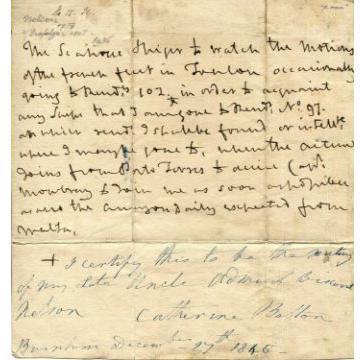 Nelson
The Seahorse Sloper to watch the Motions
of the french fleet in Toulon occasionally
going to Rendz. 102. in order to acquaint
any Ships that I am gone to Rendz. No. 97.
on which rendz. I shall be found or intell
where I may be gone to, when the
Joins from Porto Torres to Capt.
Mowbray to Join me as soon as possible
as are the daily expected from
Malta.
+ I certify this to be the writing
of my late Uncle Admiral Viscount
Nelson Catherine Bolton
Burnham December 27th 1846